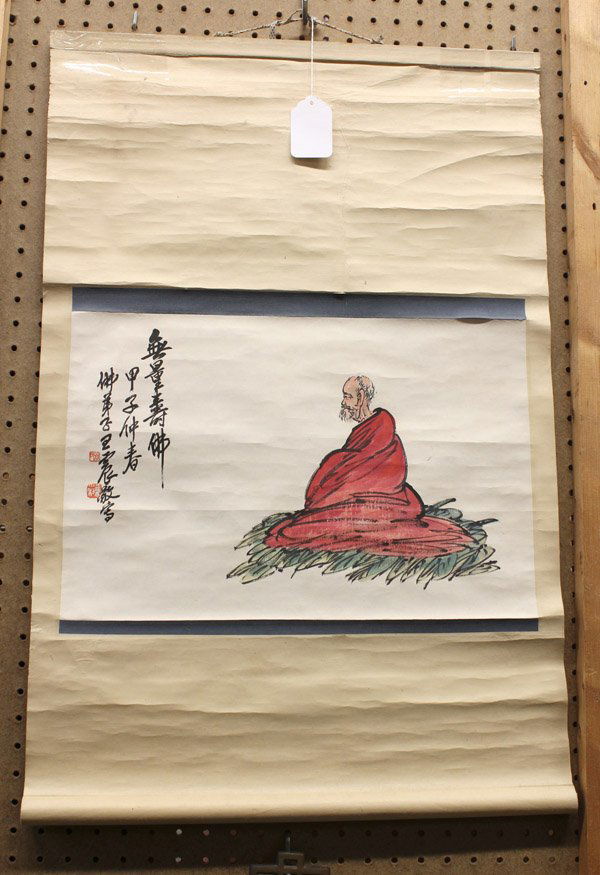 無量壽佛
甲子仲春
佛弟子王震敬寫